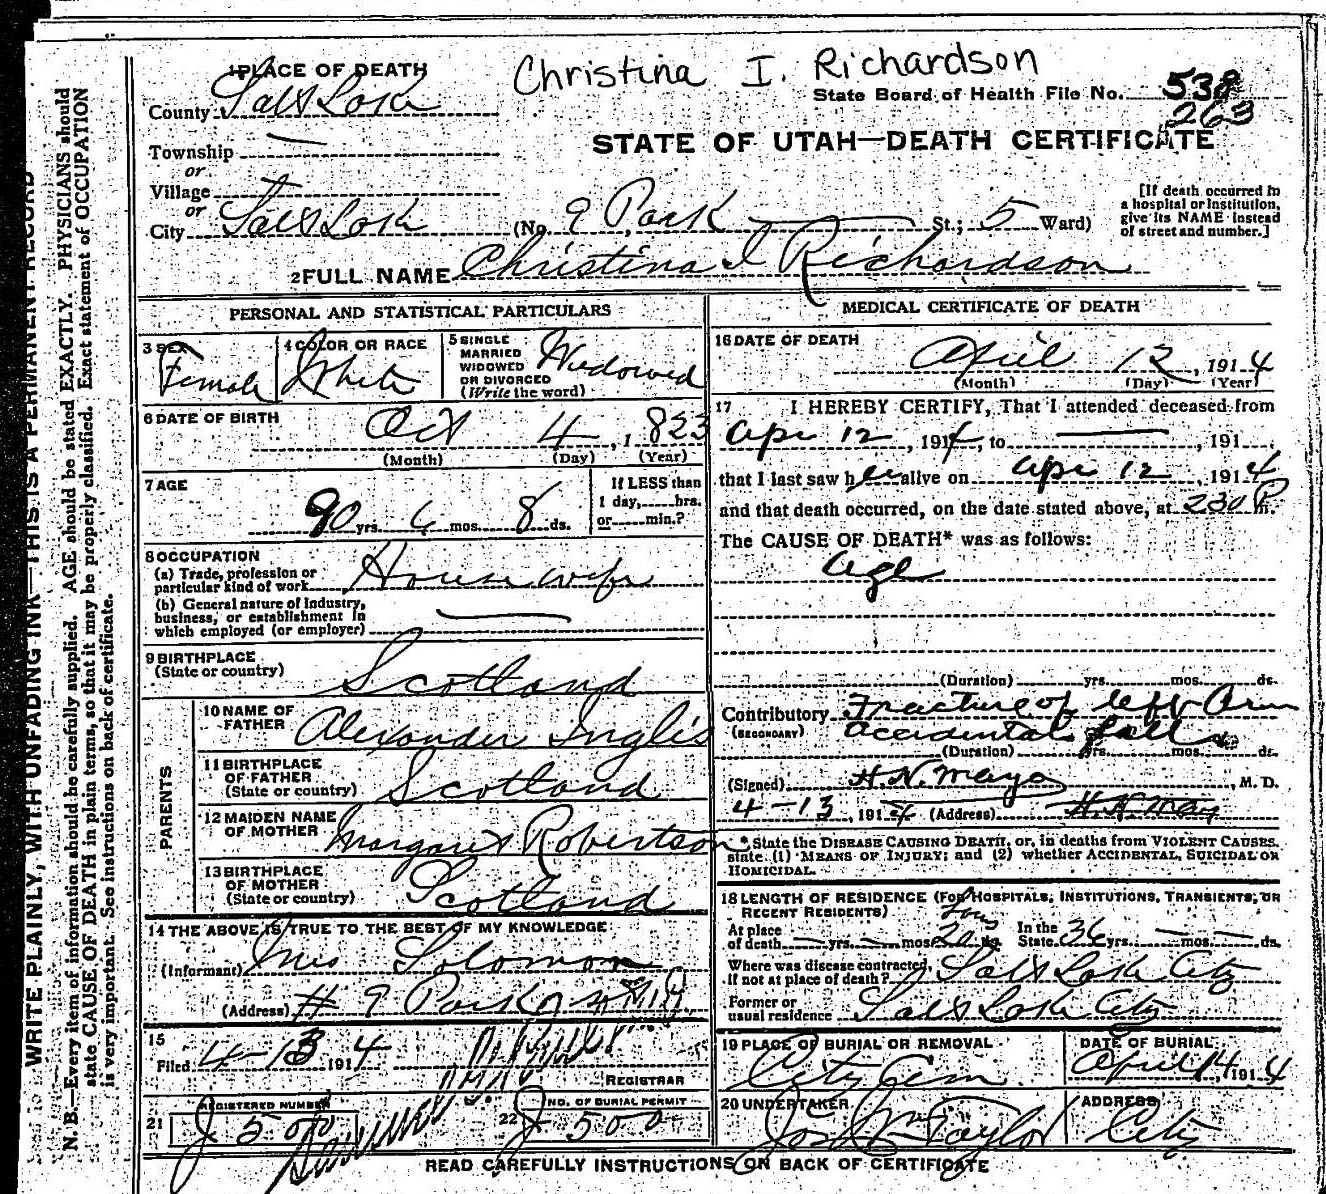 Christina I. Richardson
1 PLACE OF DEATH
County Salt Lake
State Board of Health File No. 538
263
STATE OF UTAH—DEATH CERTIFICATE
Township
or
Village
or
City Salt Lake (No. 9 Park St.; 5 Ward)
[If death occurred in
a hospital or institution,
give its NAME instead
of street and number.]
2 FULL NAME Christina I Richardson
PERSONAL AND STATISTICAL PARTICULARS
3 SEX Female
4 COLOR OR RACE White
5 SINGLE
MARRIED
WIDOWED
OR DIVORCED
(Write the word)
Widowed
6 DATE OF BIRTH
Oct 4, 1823
(Month) (Day) (Year)
7 AGE
90 yrs. 6 mos. 8 ds.
If LESS than
1 day,......hrs.
or......min.?
8 OCCUPATION
(a) Trade, profession or
particular kind of work House wife
(b) General nature of Industry,
business, or establishment in
which employed (or employer)
9 BIRTHPLACE
(State or country) Scotland
PARENTS
10 NAME OF
FATHER Alexander Inglis
11 BIRTHPLACE
OF FATHER
(State or country) Scotland
12 MAIDEN NAME
OF MOTHER Margaret Robertson
13 BIRTHPLACE
OF MOTHER
(State or country) Scotland
14 THE ABOVE IS TRUE TO THE BEST OF MY KNOWLEDGE
(Informant) Mrs Solomon
(Address) # 9 Park
15
Filed 4-13 1914
REGISTRAR
21 REGISTERED NUMBER
J 500
22 NO. OF BURIAL PERMIT
J 500
MEDICAL CERTIFICATE OF DEATH
16 DATE OF DEATH
April 12, 1914
(Month) (Day) (Year)
17 I HEREBY CERTIFY, That I attended deceased from
Apr 12, 1914, to , 191
that I last saw her alive on Apr 12, 1914
and that death occurred, on the date stated above, at 230 P m.
The CAUSE OF DEATH* was as follows:
Age
(Duration) yrs. mos. ds.
Contributory Fracture of left Arm
(SECONDARY) accidental fall
(Duration) yrs. mos. ds.
(Signed) H. N. Mayo, M. D.
4-13, 1914 (Address)
* State the DISEASE CAUSING DEATH, or, in deaths from VIOLENT CAUSES,
state (1) MEANS OF INJURY; and (2) whether ACCIDENTAL, SUICIDAL OR
HOMICIDAL.
18 LENGTH OF RESIDENCE (FOR HOSPITALS, INSTITUTIONS, TRANSIENTS, OR
RECENT RESIDENTS)
At place
of death yrs. mos. ds. In the State 36 yrs. mos. ds.
Where was disease contracted,
if not at place of death? Salt Lake City
Former or
usual residence Salt Lake City
19 PLACE OF BURIAL OR REMOVAL
City Cem.
DATE OF BURIAL
April 14, 1914
20 UNDERTAKER
Jos Wm Taylor
ADDRESS
City
READ CAREFULLY INSTRUCTIONS ON BACK OF CERTIFICATE
WRITE PLAINLY, WITH UNFADING INK—THIS IS A PERMANENT RECORD
N. B.—Every item of information should be carefully supplied. AGE should be stated EXACTLY. PHYSICIANS should
state CAUSE OF DEATH in plain terms, so that it may be properly classified. Exact statement of OCCUPATION
is very important. See instructions on back of certificate.